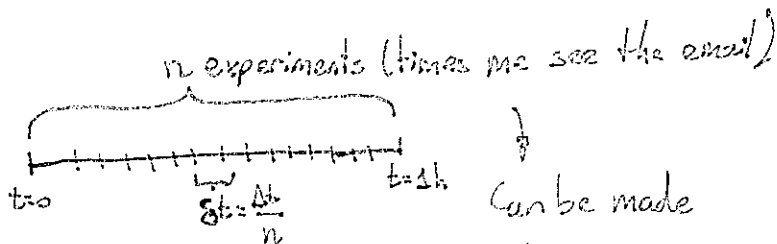 n experiments (times me see the email)
t=0
δt = Δh/n
t=1h
Can be made